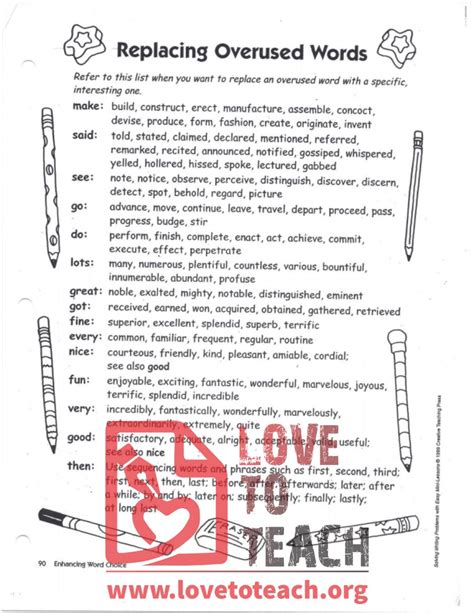 Replacing Overused Words
Refer to this list when you want to replace an overused word with a specific,
interesting one.
make: build, construct, erect, manufacture, assemble, concoct,
devise, produce, form, fashion, create, originate, invent
said: told, stated, claimed, declared, mentioned, referred,
remarked, recited, announced, notified, gossiped, whispered,
yelled, hollered, hissed, spoke, lectured, gabbed
see: note, notice, observe, perceive, distinguish, discover, discern,
detect, spot, behold, regard, picture
go: advance, move, continue, leave, travel, depart, proceed, pass,
progress, budge, stir
do: perform, finish, complete, enact, act, achieve, commit,
execute, effect, perpetrate
lots: many, numerous, plentiful, countless, various, bountiful,
innumerable, abundant, profuse
great: noble, exalted, mighty, notable, distinguished, eminent
got: received, earned, won, acquired, obtained, gathered, retrieved
fine: superior, excellent, splendid, superb, terrific
every: common, familiar, frequent, regular, routine
nice: courteous, friendly, kind, pleasant, amiable, cordial;
see also good
fun: enjoyable, exciting, fantastic, wonderful, marvelous, joyous,
terrific, splendid, incredible
very: incredibly, fantastically, wonderfully, marvelously,
extraordinarily, extremely, quite
good: satisfactory, adequate, alright, acceptable, valid, useful;
see also nice
then: Use sequencing words and phrases such as first, second, third;
first, next, then, last; before, after, afterwards; later; after
a while; by and by; later on; subsequently; finally; lastly;
at long last
LOVE
TO
TEACH
ERASER
90 Enhancing Word Choice
Solving Writing Problems with Easy Mini-Lessons © 1999 Creative Teaching Press
www.lovetoteach.org